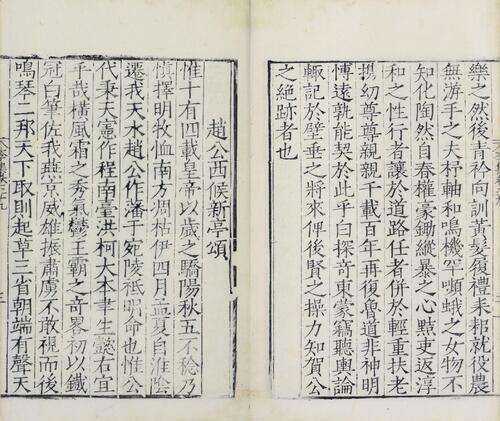 樂之然後青衿向訓黃髮履禮耒耜就役農
無游手之夫杼軸和鳴機罕嚬蛾之女物不
知化陶然自春權豪鋤縱暴之心黠吏返淳
和之性行者讓於道路任者併於輕重扶老
攜幼尊尊親親千載百年再復魯道非神明
博遠孰能契於此乎白探奇東蒙竊聽輿論
輙記於壁垂之將來俾後賢之操刀知賀公
之絶跡者也
趙公西候新亭頌
惟十有四載皇帝以歲之驕陽秋五不稔乃
慎擇明牧恤南方凋枯伊四月孟夏自淮陰
遷我天水趙公作潘于宛陵祗明命也惟公
代秉天憲作程南臺洪柯大本聿生懿右宜
乎哉橫風霜之秀氣鬱王霸之奇畧初以鐵
冠白筆佐我燕京威雄振肅虜不敢視而後
鳴琴二邦天下取則起草三省朝端有聲天